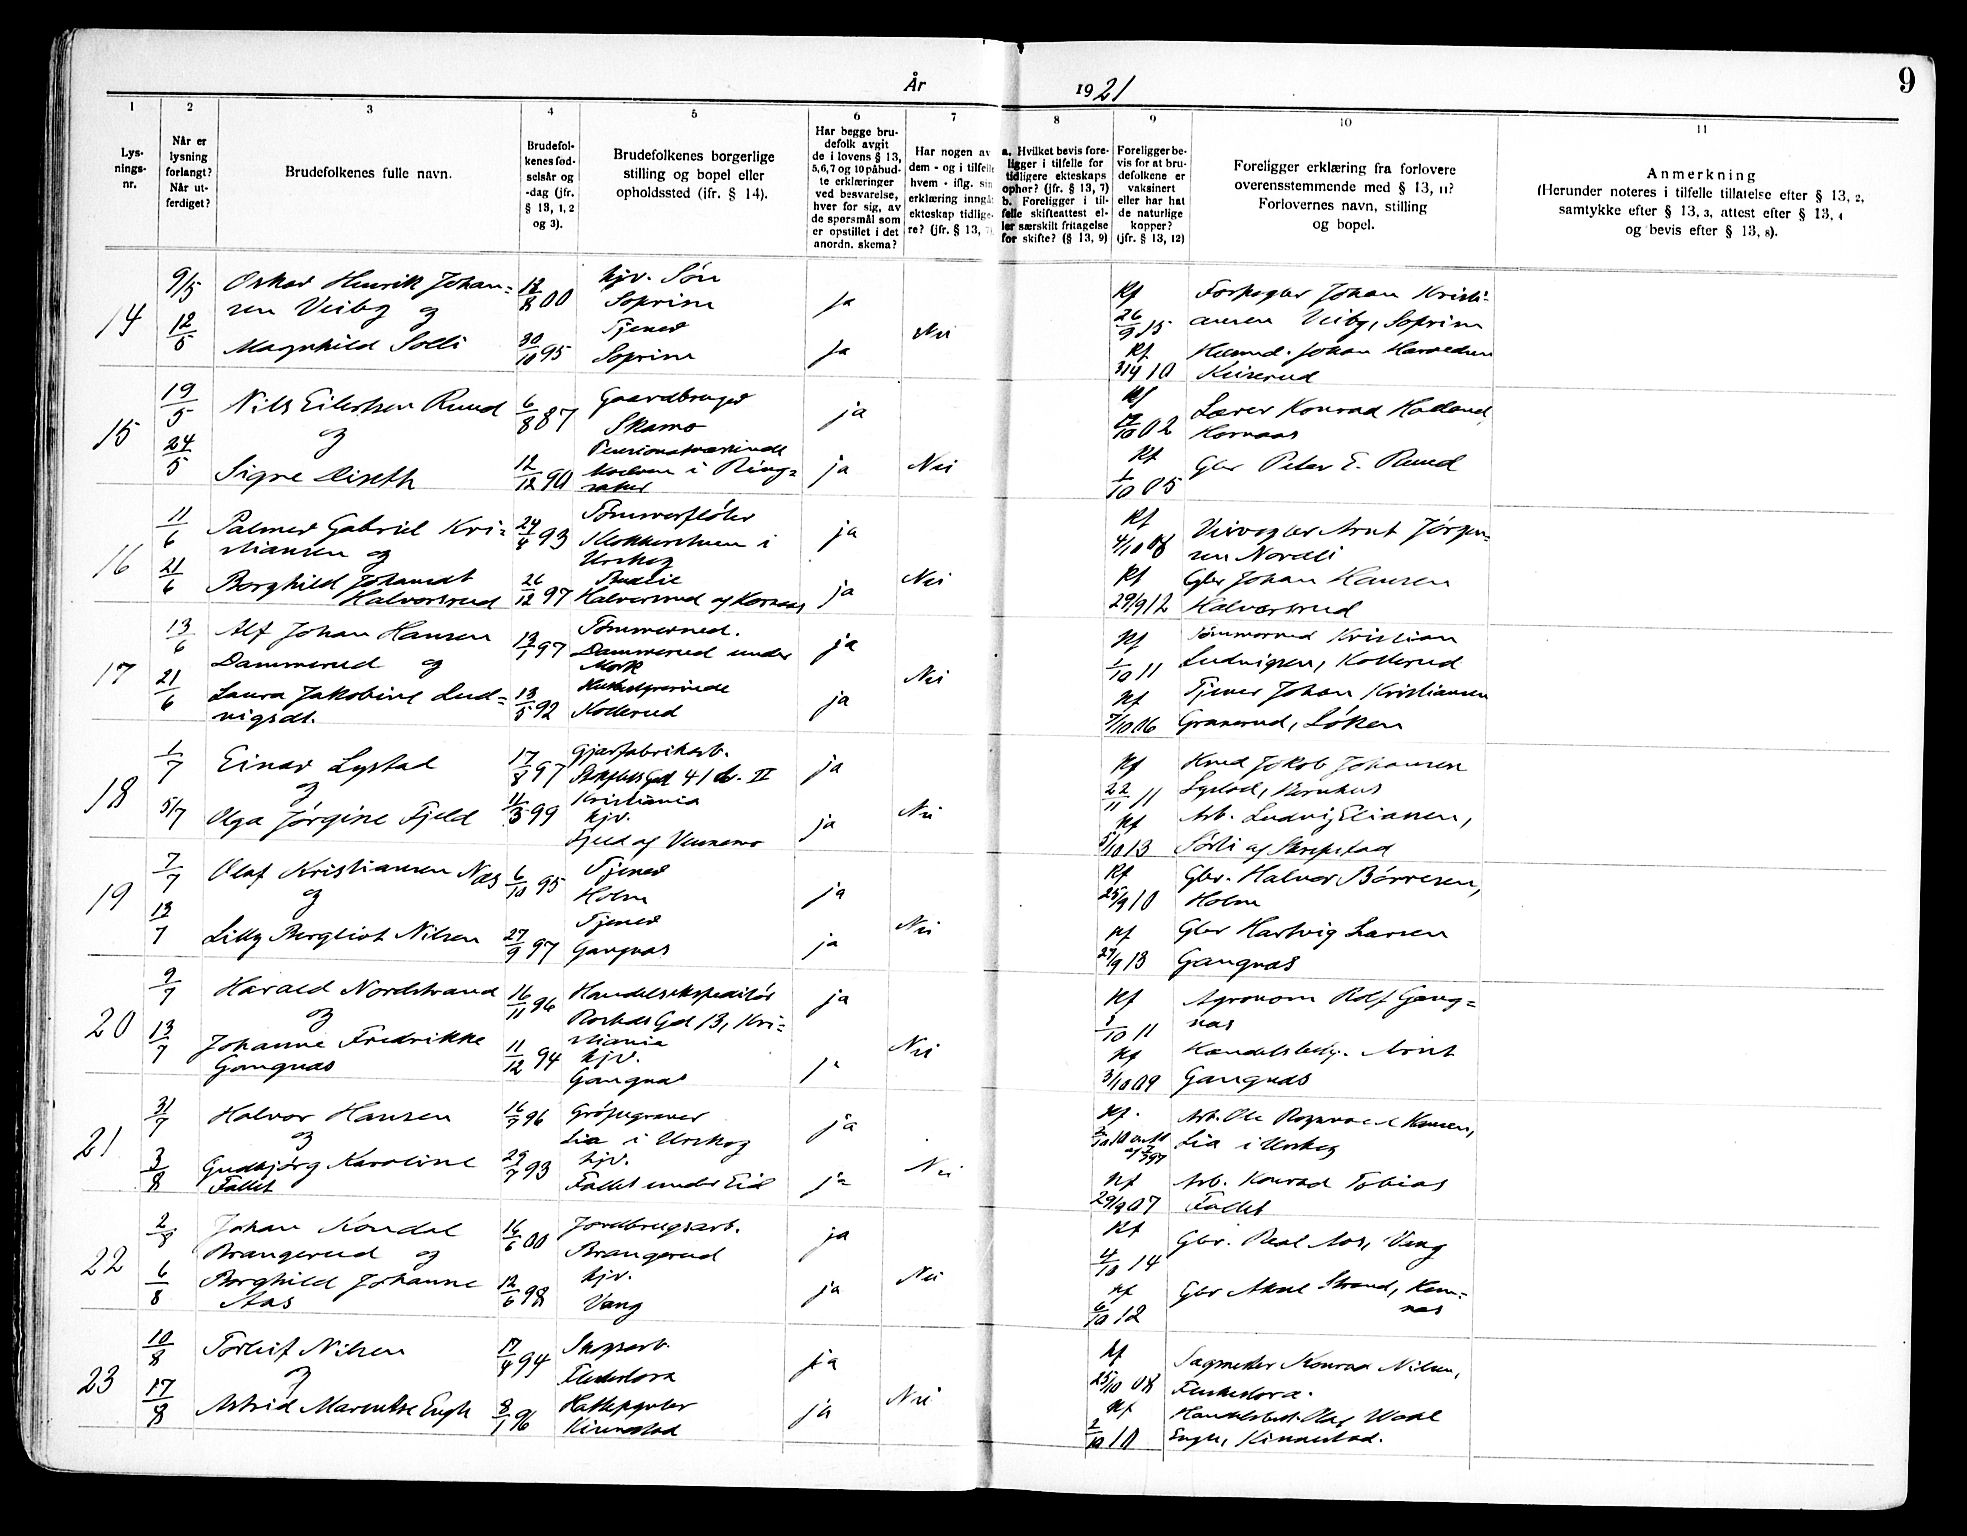 År 1921
9
1 2 3 4 5 6 7 8 9 10 11
Lys-
nings-
nr.
Når er
lysning
forlangt?
Når ut-
ferdiget?
Brudefolkenes fulle navn.
Brudefol-
kenes fød-
selsår og
-dag (jfr.
§ 13, 1, 2
og 3).
Brudefolkenes borgerlige
stilling og bopel eller
opholdssted (jfr. § 14).
Har begge bru-
defolk avgit
de i lovens § 13,
5,6,7 og 10 påbud-
te erklæringer
ved besvarelse,
hver for sig, av
de spørsmål som
er opstillet i det
anordn. skema?
Har nogen av
dem - og i tilfelle
hvem - iflg. sin
erklæring inngå
ekteskap tidlige-
re? (jfr. § 13, 7)
a. Hvilket bevis fore-
ligger i tilfelle for
tidligere ekteskaps
ophør? (jfr. § 13, 7)
b. Foreligger i til-
felle skifteattest el-
ler særskilt fritagelse
for skifte? (§ 13, 9)
Foreligger be-
vis for at bru-
defolkene er
vaksinert
eller har hat
de naturlige
kopper?
(jfr. § 13, 12)
Foreligger erklæring fra forlovere
overensstemmende med § 13, 11?
Forlovernes navn, stilling
og bopel.
Anmerkning
(Herunder noteres i tilfelle tillatelse efter § 13, 2,
samtykke efter § 13, 3, attest efter § 13, 4
og bevis efter § 13, 8).
14
9/5
12/5
Oskar Henrik Johan-
sen Veiby og
Magnhild Solli
18/8 00
30/10 95
hjv. Søn
Soprim
Tjener
Soprim
ja
ja
Nei
Kf
26/9 15
Kf
3/4 10
Johan Kristi-
ansen Veiby, Soprim
Johan Haraldsen
Keiserud
15
19/5
24/5
Nils Eilertsen Ruud
og
Signe Diseth
6/8 87
12/12 90
Gaardbruger
Skamo
i Ring-
saker
ja
ja
Nei
Kf
17/10 02
Kf
1/10 05
Lærer Konrad Holland
Hornaas
Gbr Peter E. Ruud
16
11/6
21/6
Palmer Gabriel Kri-
stiansen og
Borghild Johansdt
Halvorsrud
24/8 93
26/12 97
Tømmerfløter
Klokkerstuen i
Urskog
Budeie
Halvorsrud af Hornaas
ja
ja
Nei
Kf
4/10 08
Kf
29/9 12
Veivogter Arnt Jørgen-
sen Nordli
Gbr Johan Hansen
Halvorsrud
17
13/6
21/6
Alf Johan Hansen
Dammerud og
Laura Jakobine Lud-
vigsdt.
13/1 97
13/5 92
Tømmermd.
Dammerud under
Mork
Husbestyrerinde
Kollerud
ja
ja
Nei
Kf
1/10 11
Kf
7/10 06
Tømmermd Kristian
Ludvigsen, Kollerud
Tjener Johan Kristiansen
Granerud, Løken
18
1/7
5/7
Einar Lystad
og
Olga Jørgine Fjeld
17/8 97
11/3 99
Gjærfabrikarb.
Gd 41 b. II
Kristiania
hjv.
Fjeld af Vennemo
ja
ja
Nei
Kf
22/11 11
Kf
5/10 13
Jakob Johansen
Lystad,
Arb. Ludvig Eliassen,
Sørli af Skrepstad
19
7/7
13/7
Olaf Kristiansen Næs
og
Lilly Bergliot Nilsen
6/10 95
27/9 97
Tjener
Holm
Tjener
Gangnæs
ja
ja
Nei
Kf
25/9 10
Kf
27/9 13
Gbr. Halvor Børresen,
Holm
Gbr Hartvig Larsen
Gangnæs
20
9/7
13/7
Harald Nordstrand
og
Johanne Fredrikke
Gangnæs
16/11 96
11/12 94
Handelsekspeditør
Gd 13, Kri-
stiania
hjv.
Gangnæs
ja
ja
Nei
Kf
8/10 11
Kf
3/10 09
Agronom Rolf Gang-
næs
Handelsbesty. Arnt
Gangnæs
21
31/7
3/8
Halvor Hansen
og
Gudbjørg Karoline
Fallet
16/7 96
29/7 93
Grøftegraver
Lia i Urskog
hjv.
Fallet under Eid
ja
ja
Nei
Kf.
Kf
29/9 07
Arb. Ole Hansen,
Lia i Urskog
Arb. Konrad Tobias
Fallet
22
2/8
6/8
Johan Kondal
Brangerud og
Borghild Johanne
Aas
16/6 00
12/6 98
Jordbrugsarb.
Brangerud
hjv.
Vang
ja
ja
Nei
Kf
4/10 14
Kf
6/10 12
Gbr. Aas, Vang
Gbr Aksel Strand, Kam-
næs
23
10/8
17/8
Torleif Nilsen
og
Astrid Marentse Engh
17/4 94
8/1 96
Sagarb.
Hattepynter
Kinnestad
ja
ja
Nei
Kf
25/10 08
Kf
2/10 10
Sagmester Konrad Nilsen,
Handelsbest. Olaf Wold
Engh, Kinnestad.